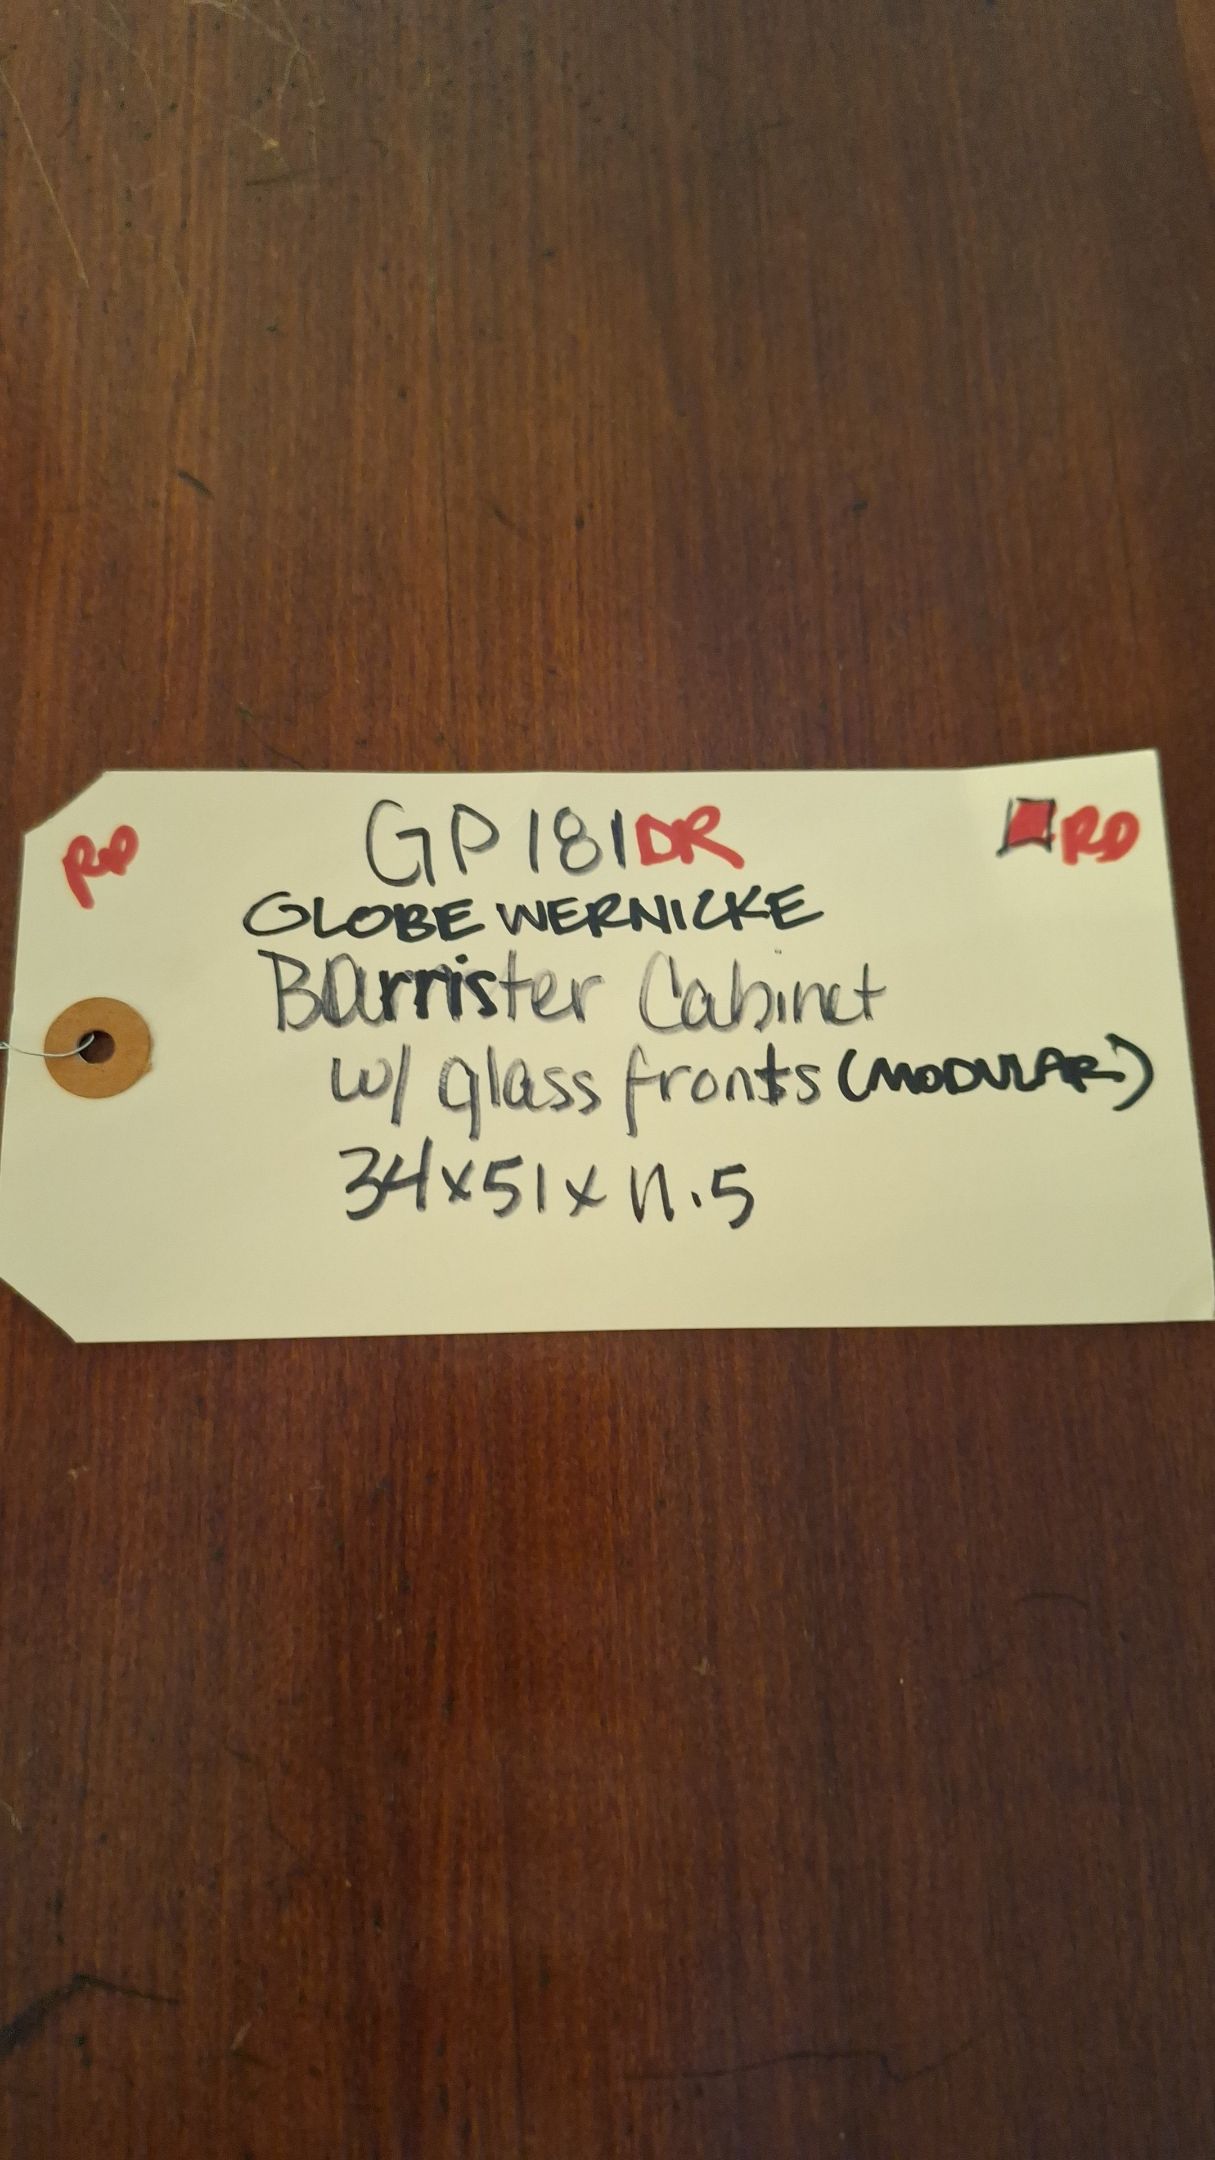 GP181DR
RD
GLOBE WERNICKE
Barrister Cabinet
w/ glass fronts (MODULAR)
34x51x11.5